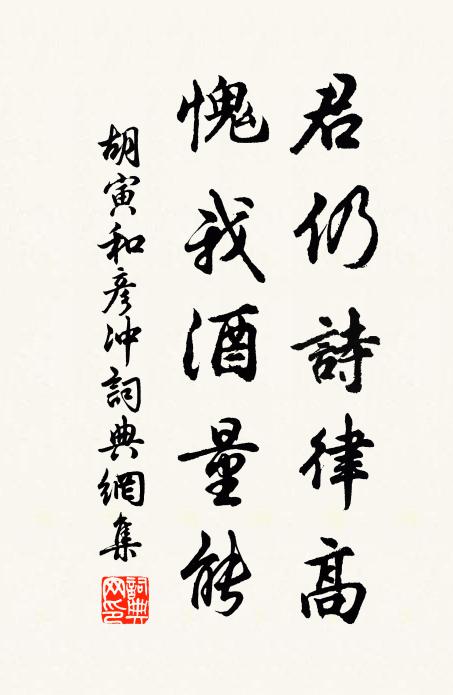 君仍詩律高
愧我酒量能
胡寅和彦沖詞典網集
詞典網印